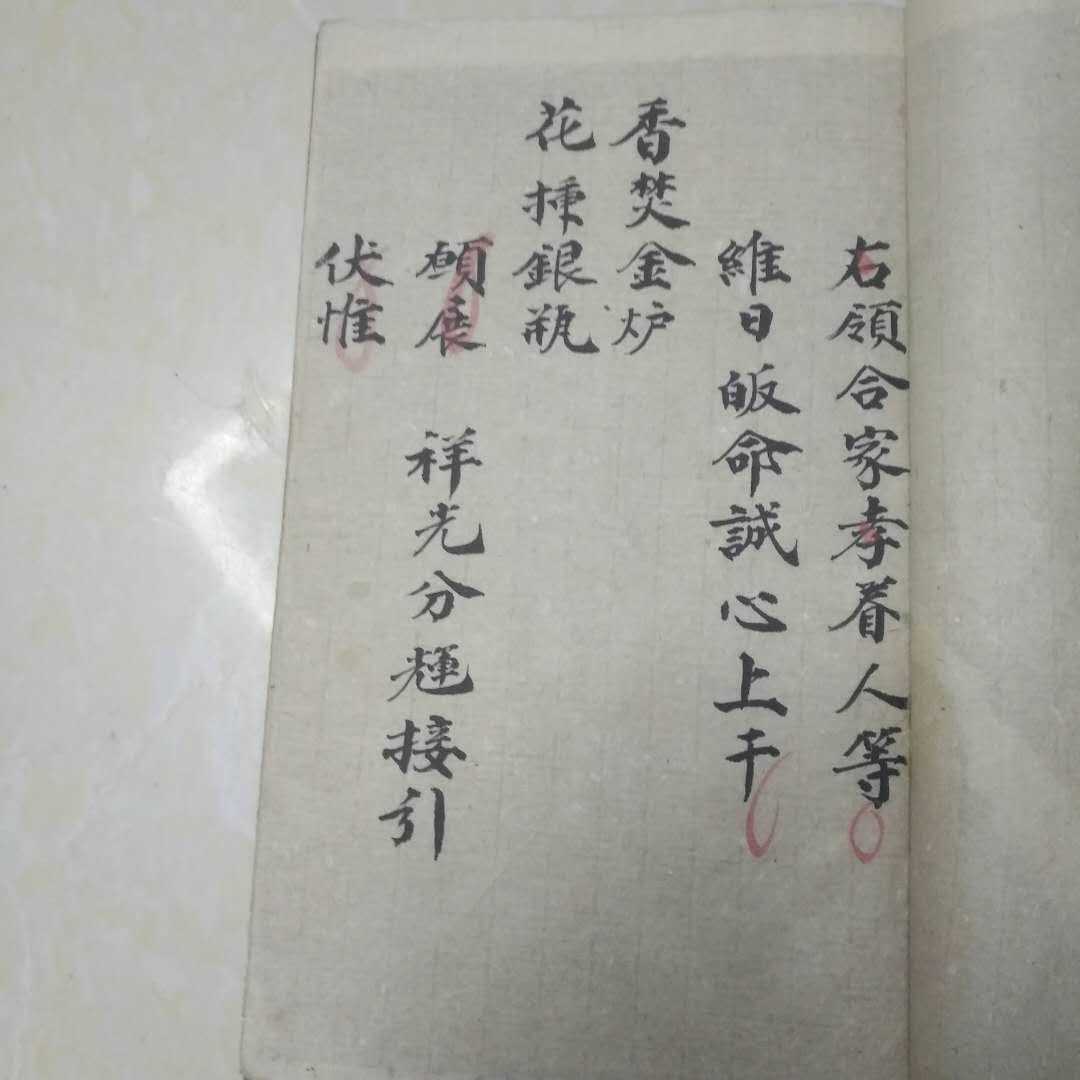 右領合家孝眷人等
維日皈命誠心上干
香焚金炉
花挿銀瓶
願展　祥光分輝接引
伏惟